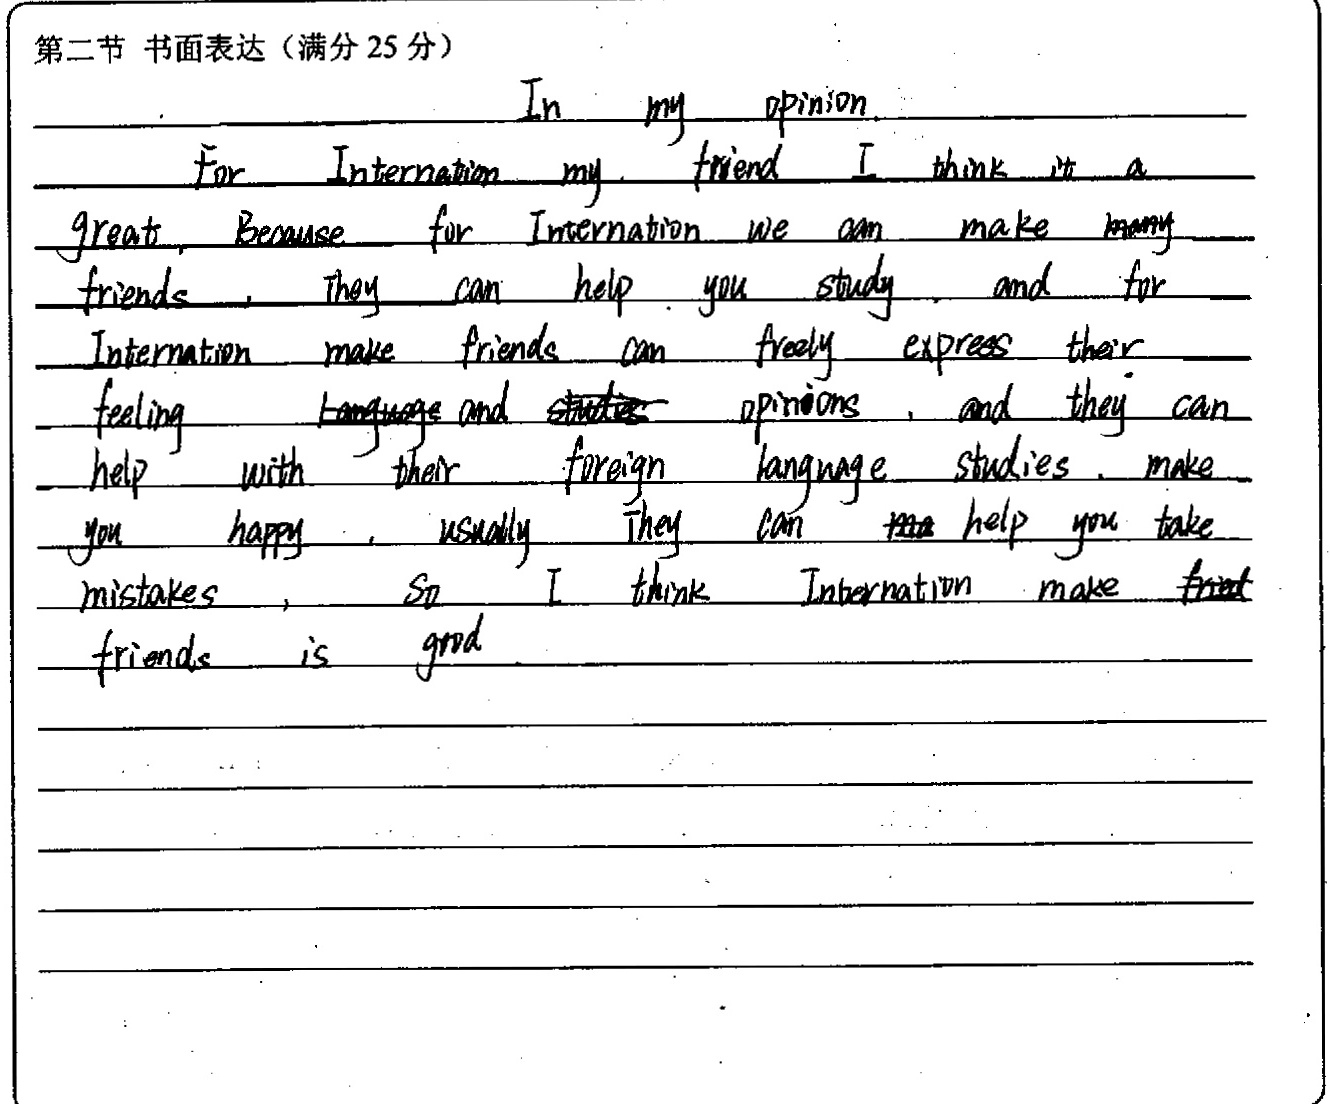 第二节 书面表达（满分 25 分）
In my opinion
For Internation my friend I think it a
great. Because for Internation we can make many
friends, They can help you study. and for
Internation make friends can freely express their
feeling and opinions, and they can
help with their foreign language studies. make
you happy. usually They can help you take
mistakes, So I think Internation make
friends is good.